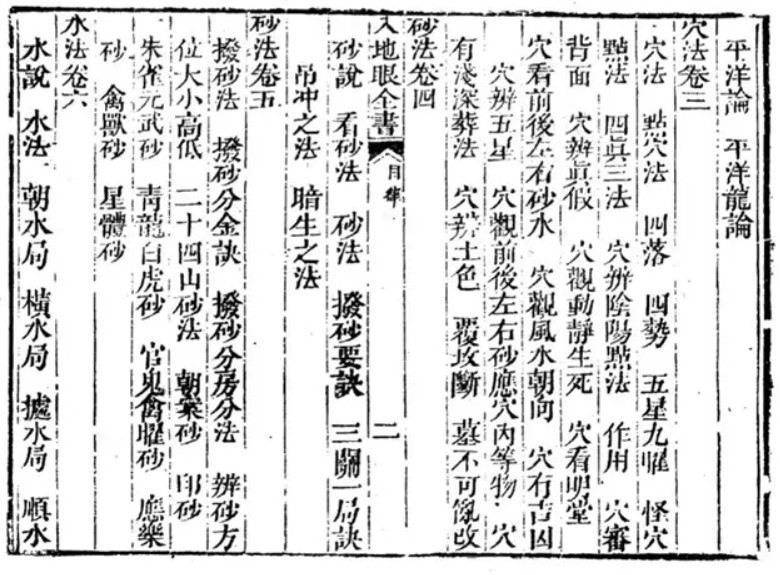 平洋論 平洋龍論
穴法卷三
穴法 點穴法 四落 四勢 五星九曜 怪穴
點法 四眞三法 穴辨陰陽點法 作用 穴審
背面 穴辨眞假 穴觀動靜生死 穴看明堂
穴看前後左右砂水 穴觀風水朝向 穴有吉凶
穴辨五星 穴觀前後左右砂應穴內等物 穴
有淺深葬法 穴辨土色 覆攷斷 墓不可亂改
砂法卷四
入地眼全書 目錄 二
砂說 看砂法 砂法 撥砂要訣 三關一局訣
吊冲之法 暗生之法
砂法卷五
撥砂法 撥砂分金訣 撥砂分房分法 辨砂方
位大小高低 二十四山砂法 朝案砂 印砂
朱雀元武砂 青龍白虎砂 官鬼禽曜砂 應樂
砂 禽獸砂 星體砂
水法卷六
水說 水法 朝水局 橫水局 據水局 順水